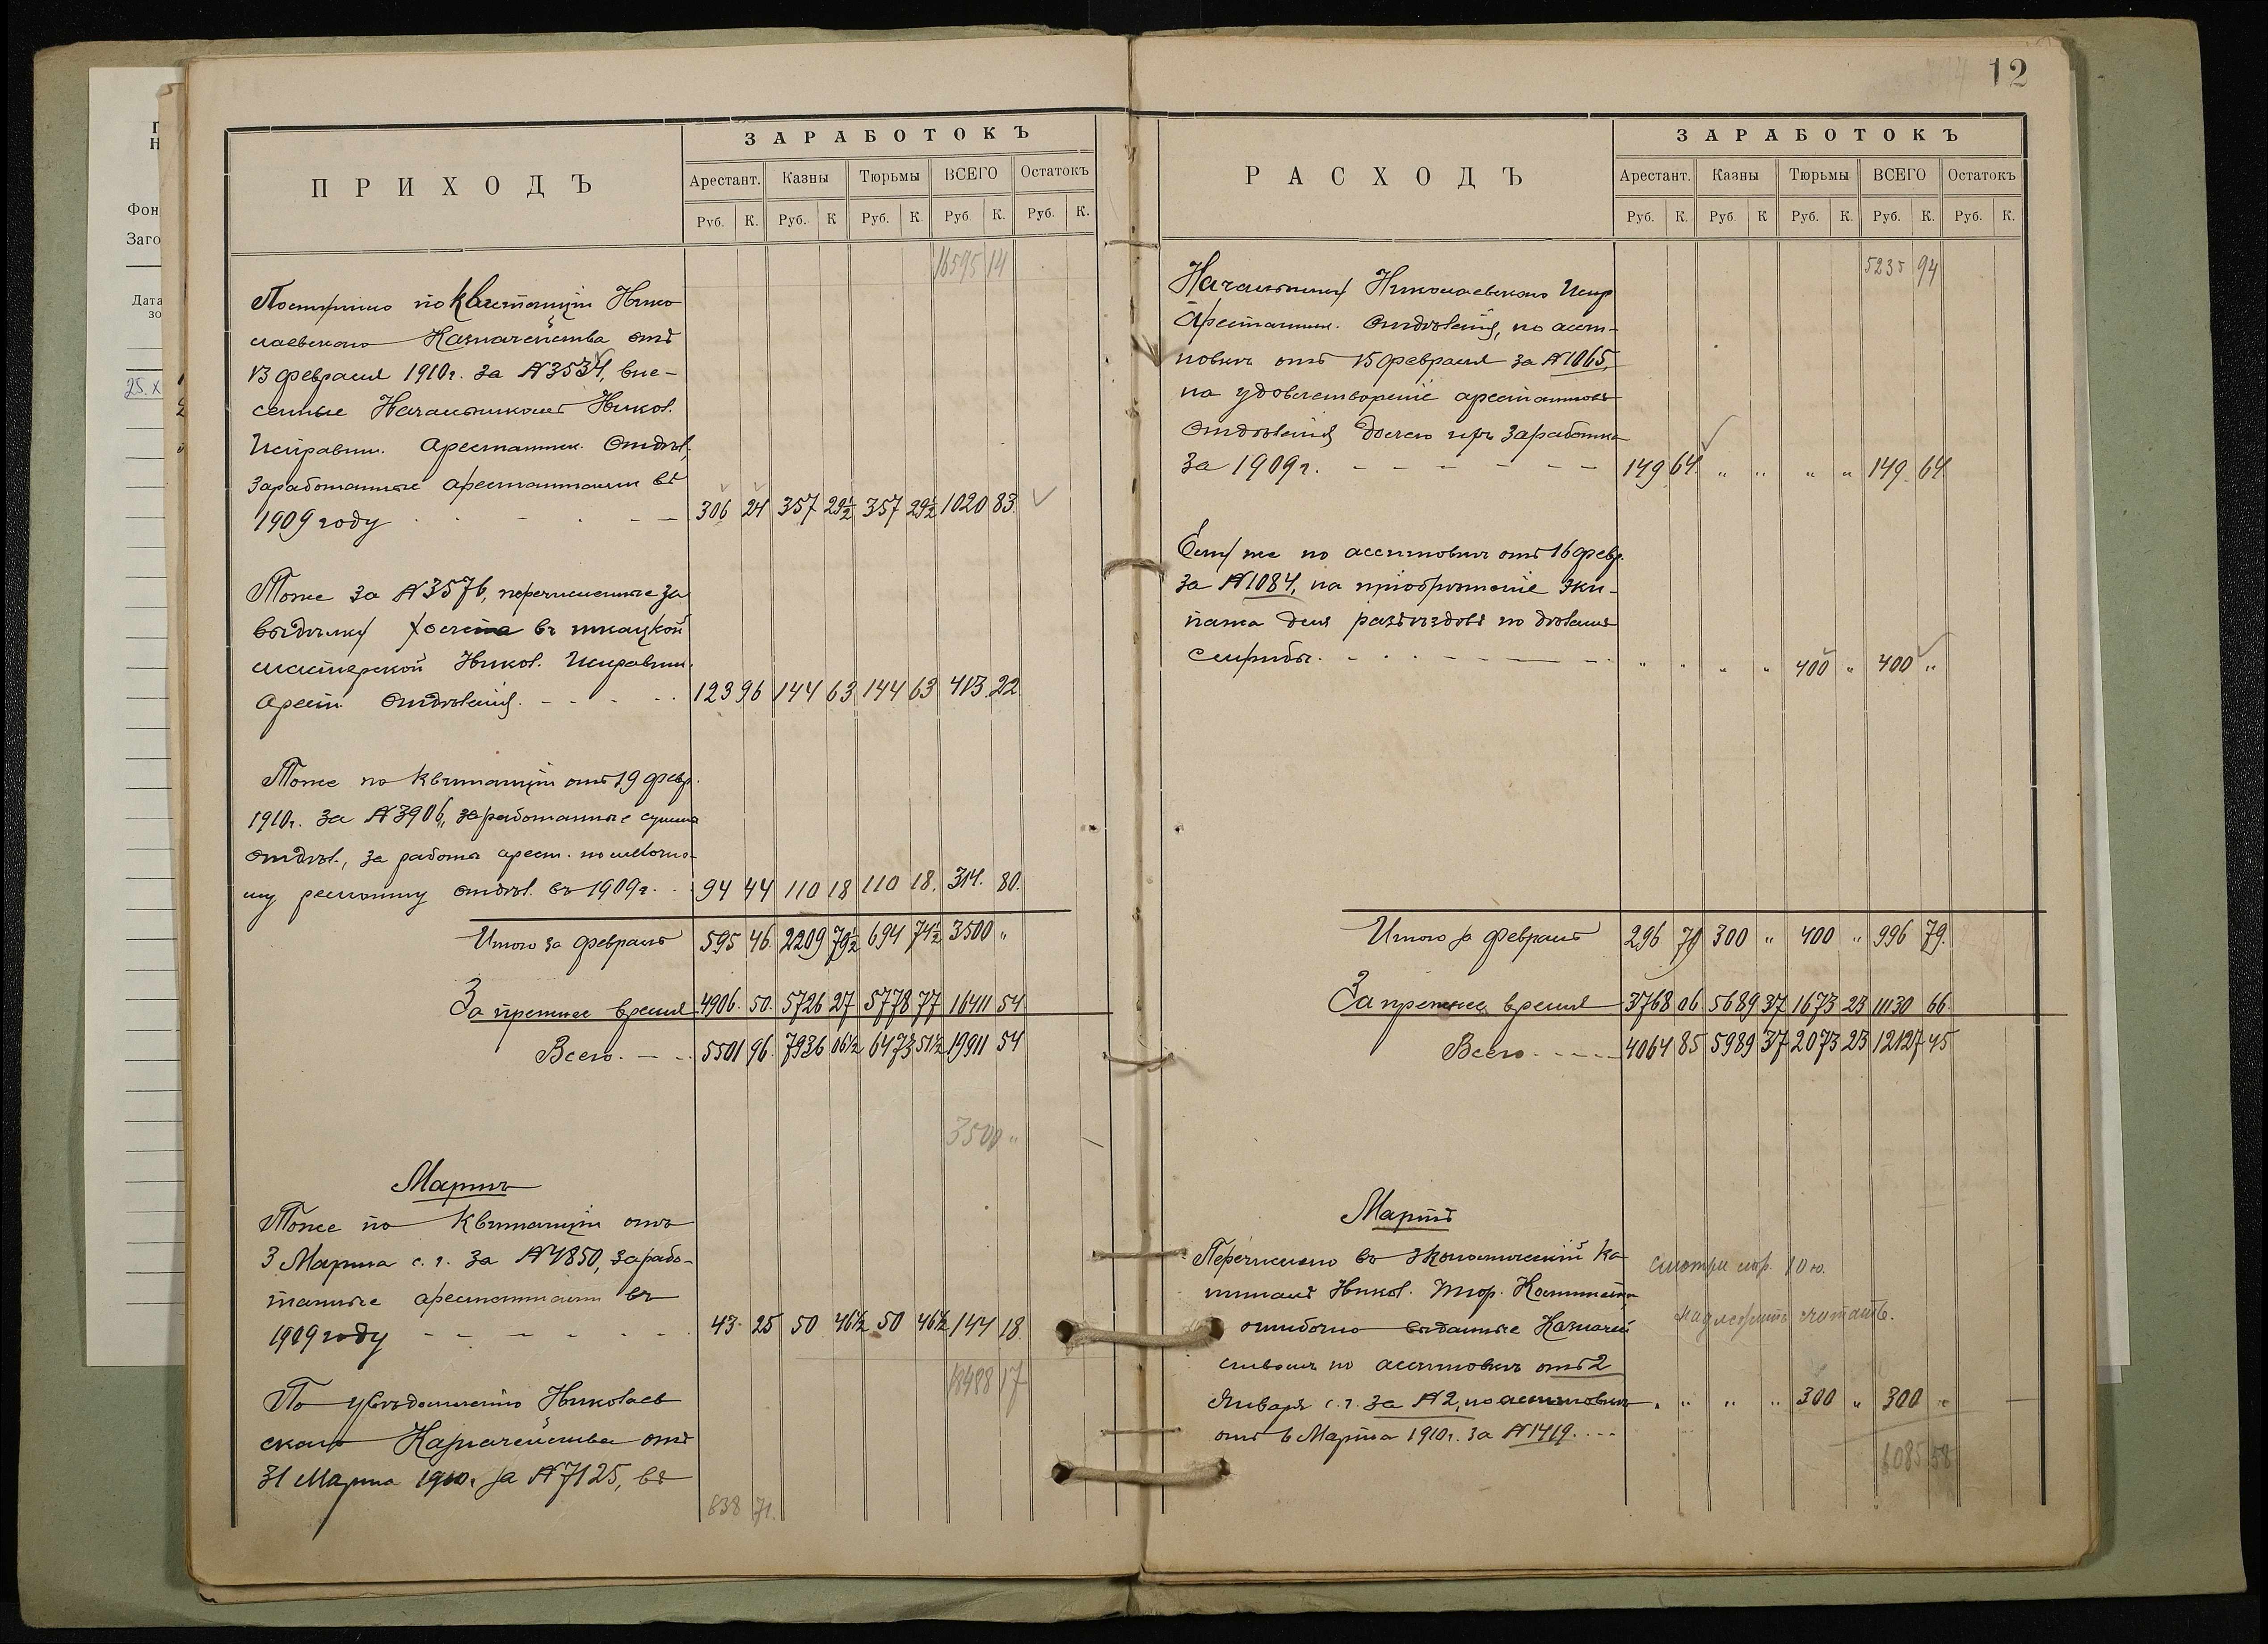 12
ПРИХОДЪ
ЗАРАБОТОКЪ
Арестант. Казны Тюрьмы ВСЕГО Остатокъ
Руб. К. Руб. К Руб. К. Руб. К. Руб. К.
16595 14
Поступило по квитанціи Нико
лаевскаго Казначейства отъ
13 февраля 1910г. за №3534, вне-
сенные Начальникомъ Никол.
Исправит. Арестантск. Отдѣл.
заработанные арестантами въ
1909 году 306 24 357 29½ 357 29½ 1020 83
Тоже за №3576, перечисленные за
выдѣлку холста въ ткацкой
мастерской Никол. Исправит.
Арест. Отдѣленія. 123 96 144 63 144 63 413 22
Тоже по квитанціи отъ 19 февр.
1910г. за №3906, заработанные сумма
отдѣл., за работы арест. по
му ремонту отдѣл. въ 1909г. 94 44 110 18 110 18. 314. 80.
Итого за Февраль 595 46. 2209 79½ 694 74½ 3500 "
За прежнее время 4906. 50. 5726 27 5778 77 16411 54
Всего. 5501 96. 7936 06½ 6473 51½ 19911 54
3500 "
Мартъ
Тоже по квитанціи отъ
3 Марта с. г. за №4850, зарабо-
танные арестантами въ
1909 году 43. 25 50 46½ 50 46½ 144 18
18488 17
По увѣдомленію Николаев
скаго Казначейства отъ
31 Марта 1910г. за №7125, въ
838 71.
РАСХОДЪ
ЗАРАБОТОКЪ
Арестант. Казны Тюрьмы ВСЕГО Остатокъ
Руб. К. Руб. К Руб. К. Руб. К. Руб. К.
5235 94
Начальнику Николаевскаго Испр
Арестантск. Отдѣленія, по ассиг-
новкѣ отъ 15 февраля за №1065,
на удовлетвореніе арестантовъ
Отдѣленія долею изъ заработка
за 1909г. 149 64. " " " " 149. 64
Ему же по ассигновкѣ отъ 16 февр.
за №1084, на пріобрѣтеніе эки-
пажа для разъѣздовъ по дѣламъ
службы. " " " " 400 " 400 "
Итого за Февраль 296 79 300 " 400 " 996 79.
За прежнее время 3768 06. 5689 37 1673 23 11130 66.
Всего 4064 85 5989 37 2073 23 12127 45
Мартъ
Перечислено въ экономическій ка
питалъ Никол. Тюр. Комитета,
ошибочно выданные Казначей
ствомъ по ассигновкѣ отъ 2
Января с. г. за №2, по ассигновкѣ " " " " 300 " 300 "
отъ 6 Марта 1910г. за №1419.
смотри стр. 10ю.
надлежитъ считать.
6085 58